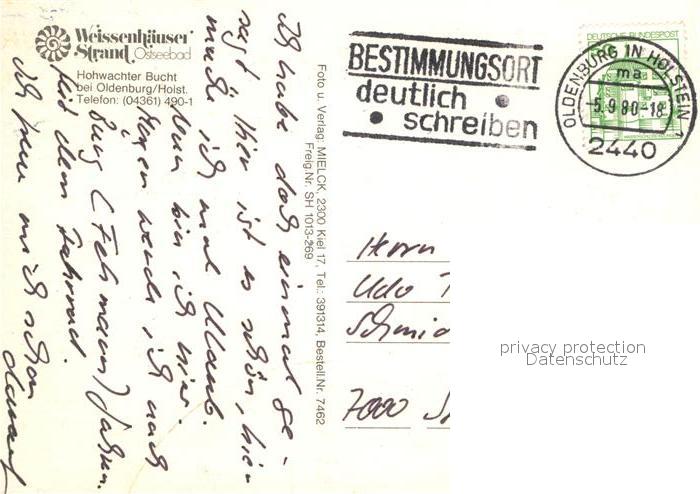 Weissenhäuser
Strand Ostseebad
Hohwachter Bucht
bei Oldenburg/Holst.
Telefon: (04361) 490-1
Ich habe doch einmal ge-
sagt hier ist es schön, hier
mache ich mal Urlaub.
bin ich hier.
Morgen werde ich nach
Burg (Fehmarn) fahren.
mit dem Fahrrad
Ich freu mich schon
darauf
Foto u. Verlag: MIELCK, 2300 Kiel 17, Tel.: 391314, Bestell.Nr. 7462
Freig.Nr. SH 1013-269
BESTIMMUNGSORT
deutlich
schreiben
DEUTSCHE BUNDESPOST
OLDENBURG IN HOLSTEIN 1
ma
-5.9.80-18
2440
Herrn
Udo
Schmid
7000
privacy protection
Datenschutz